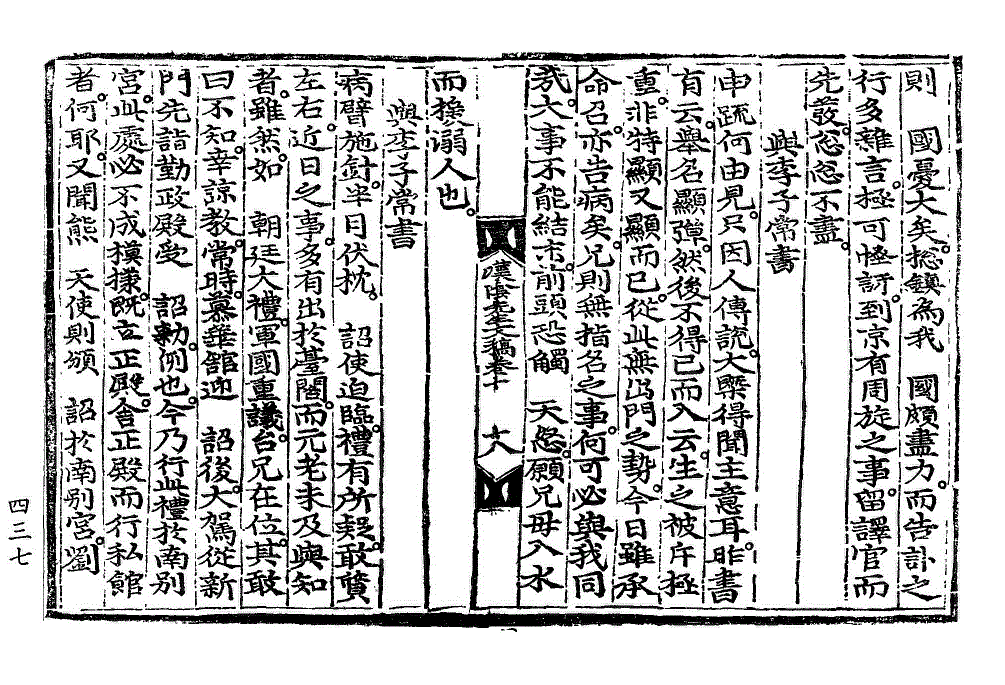 則　國憂大矣摠鎭為我　國頗盡力而告訃之
行多雜言極可恠訝到京有周旋之事留譯官而
先發怱怱不盡
與李子常書
申䟽何由見只因人傳說大槩得聞主意耳昨書
有云擧名顯彈然後不得已而入云生之被斥極
重非特顯又顯而已從此無出門之勢今日雖承
命召亦告病矣兄則無指名之事何可必與我同
㢤大事不能結末前頭恐觸　天怒願兄毋入水
而援溺人也
與李子常書
病臂施針半月伏枕　詔使迫臨禮有所疑敢質
左右近日之事多有出於臺閣而元老未及與知
者雖然如　朝廷大禮軍國重議台兄在位其敢
曰不知幸諒教常時慕華館迎　詔後大駕從新
門先詣勤政殿受　詔勑例也今乃行此禮於南別
宮此處必不成模㨾旣立正殿舍正殿而行私館
者何耶又聞熊　天使則頒　詔於南別宮劉
漢陰先生文稿卷十
十八
四三七